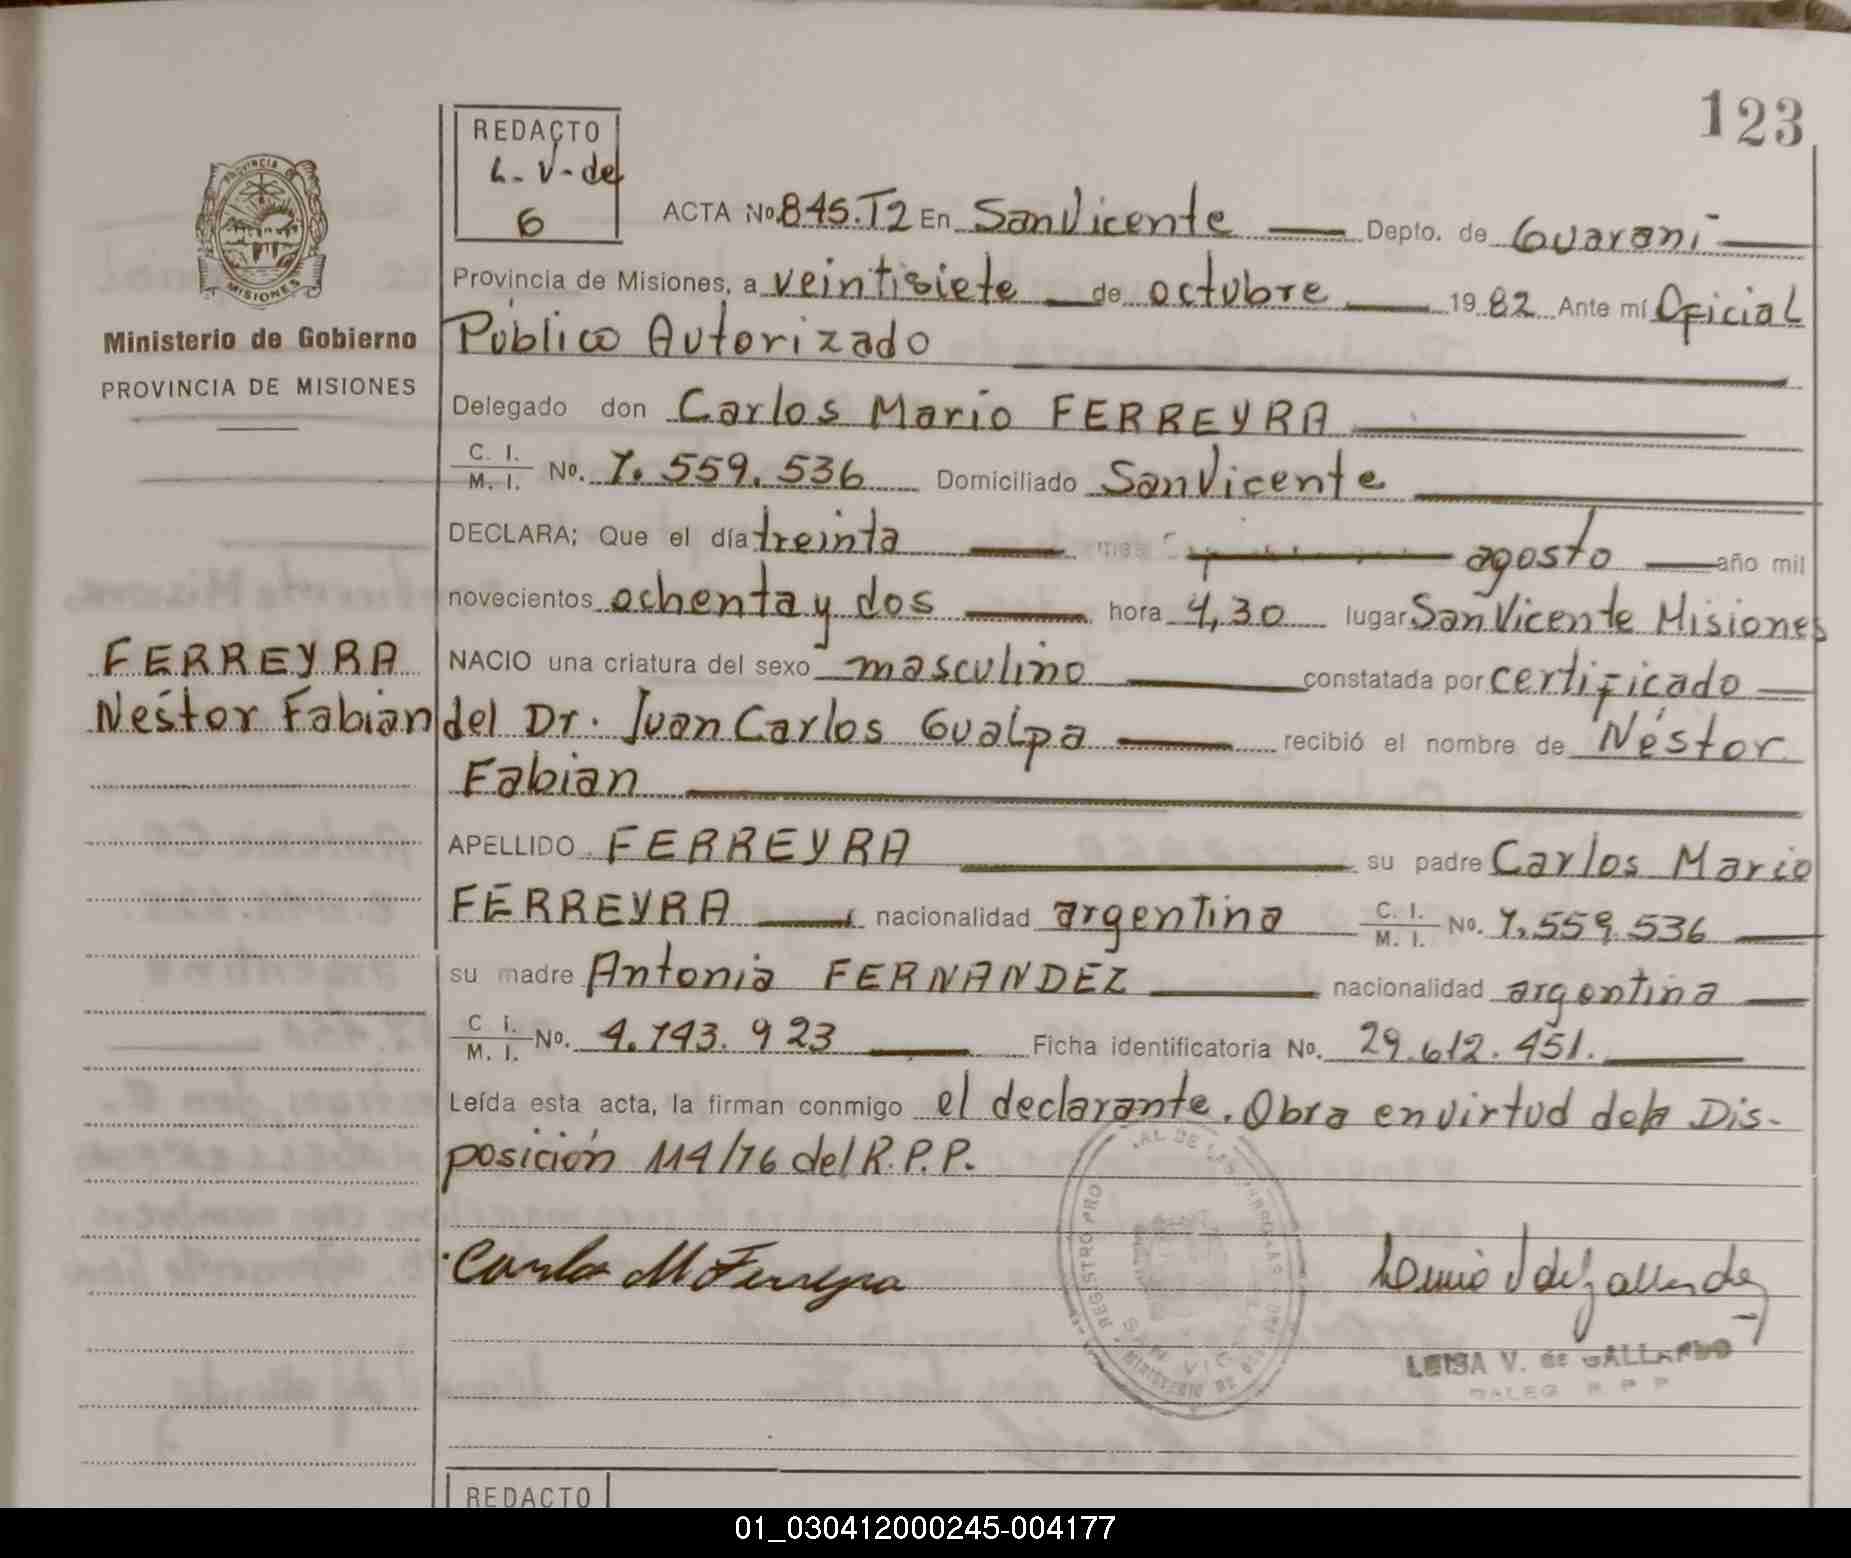 123
REDACTO
L. V. de
G
ACTA No. 845.T2 En San Vicente Depto. de Guaraní
PROVINCIA DE
MISIONES
Provincia de Misiones, a veintisiete de octubre 1982 Ante mí Oficial
Ministerio de Gobierno
Público Autorizado
PROVINCIA DE MISIONES
Delegado don Carlos Mario FERREYRA
C. I. / M. I. No. 7.559.536 Domiciliado San Vicente
DECLARA; Que el día treinta mes agosto año mil
novecientos ochenta y dos hora 4,30 lugar San Vicente Misiones
FERREYRA
Néstor Fabian
NACIO una criatura del sexo masculino constatada por certificado
del Dr. Juan Carlos Gualpa recibió el nombre de Néstor
Fabian
APELLIDO FERREYRA su padre Carlos Mario
FERREYRA nacionalidad argentina C. I. / M. I. No. 7.559.536
su madre Antonia FERNANDEZ nacionalidad argentina
C. I. / M. I. No. 4.743.923 Ficha identificatoria No. 29.612.451.
Leída esta acta, la firman conmigo el declarante. Obra en virtud de la Dis-
posición 114/76 del R.P.P.
Carlos M Ferreyra
LUISA V. de GALLARDO
R P P
REDACTO
01_030412000245-004177